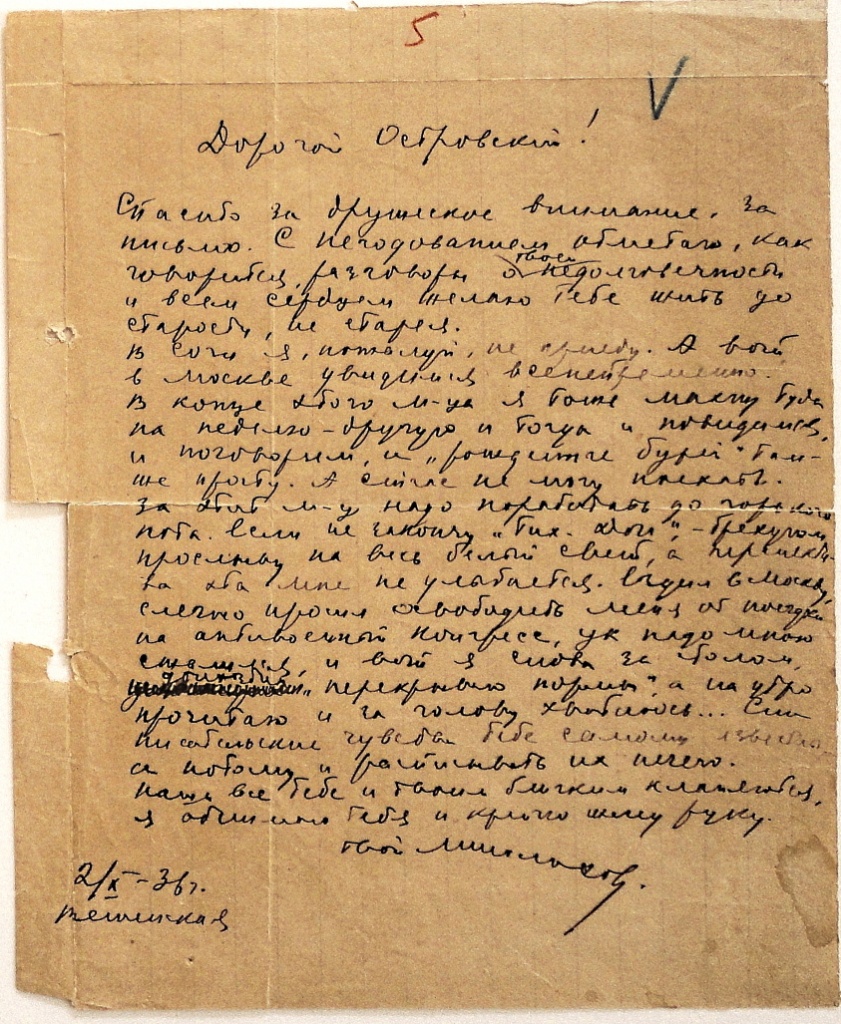 5
V
Дорогой Островский!
Спасибо за дружеское внимание, за
письмо. С негодованием отметаю, как
твоей
говорится, разговоры о недолговечности
и всем сердцем желаю тебе жить до
старости, не старея.
В Сочи я, пожалуй, не приеду. А вот
в Москве увидимся всенепременно.
В конце этого м-ца я тоже махну туда
на неделю-другую и тогда и повидаемся,
и поговорим, и „рожденные бурей" там-
же прочту. А сейчас не могу поехать.
За этот м-ц надо поработать до горького
пота. Если не закончу „Тих. Дон", – брехуном
прослыву на весь белый свет, а перспекти-
ва эта мне не улыбается. Ездил в Москву,
слезно просил освободить меня от поездки
на антивоенный конгресс, ЦК надо мною
сжалился, и вот я снова за столом,
„перекрываю нормы", а на утро
прочитаю и за голову хватаюсь... Сии
писательские чувства тебе самому известны
а потому и расписывать их нечего.
Наши все тебе и твоим близким кланяются,
я обнимаю тебя и крепко жму руку.
твой М. Шолохов.
2/X – 36 г.
Вешенская